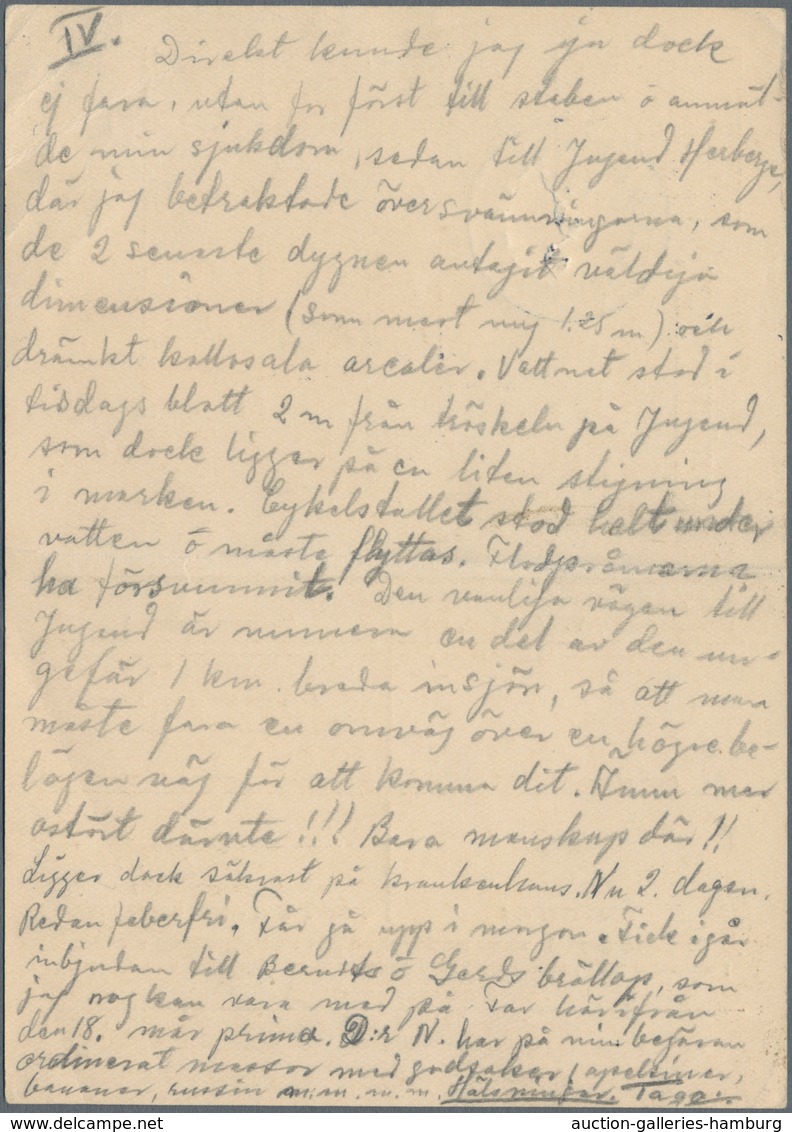 IV.
Direkt kunde jag ju dock
ej fara, utan for först till staben o anmäl-
de min sjukdom, sedan till Jugend Herberge,
där jag betraktade översvämningarna, som
de 2 senaste dygnen antagit väldiga
dimensioner (som mest nog 1.25 m) och
dränkt kollosala arealer. Vattnet stod i
tisdags blott 2 m från tröskeln på Jugend,
som dock ligger på en liten stigning
i marken. Cykelstallet stod helt under
vatten o måste flyttas. Flodpråmarna
ha försvunnit. Den vanliga vägen till
Jugend är numera en del av den un-
gefär 1 km. breda insjön, så att man
måste fara en omväg över en högre be-
lägen väg för att komma dit. Ännu mer
ostört därute!!! Bara manskap där!!
Ligger dock säkrast på Krankenhaus. Nu 2. dagen.
Redan feberfri. Får gå upp i morgon. Fick igår
inbjudan till Bernts o Gerds bröllop, som
jag nog kan vara med på. Far härifrån
den 18. mår prima. D:r N. har på min begäran
ordinerat massor med godsaker (apelsiner,
bananer, russin m.m. m.m. Hälsningar. Tage.
www.auction-galleries-hamburg